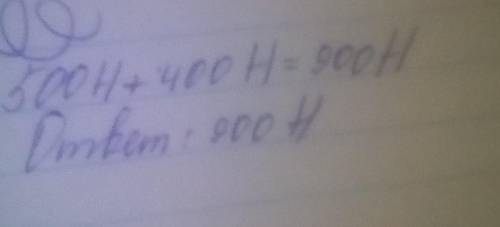 500Н + 400Н = 900Н
Ответ: 900 Н